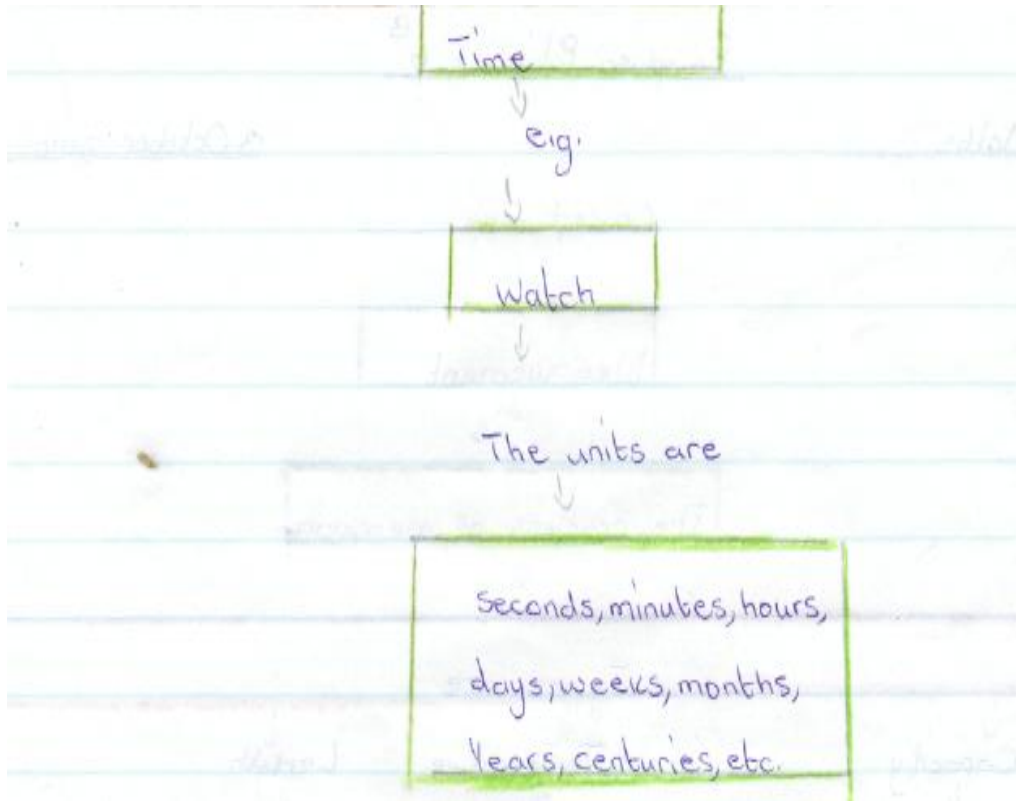 Time
e.g.
Watch
The units are
seconds, minutes, hours,
days, weeks, months,
Years, centuries, etc.